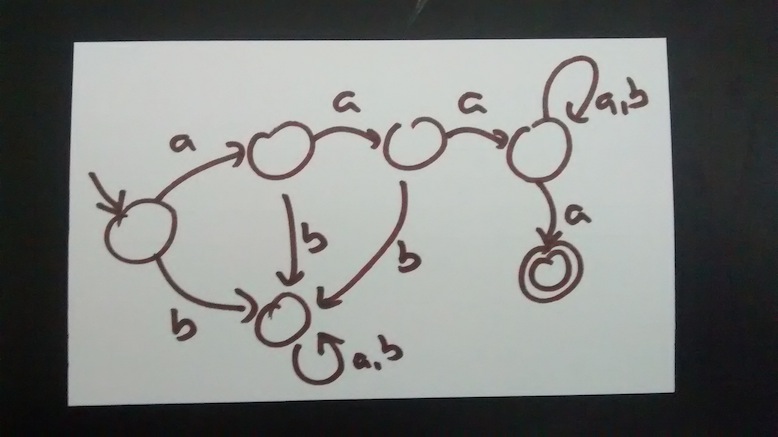 a
a
a
a,b
a
b
b
b
a,b